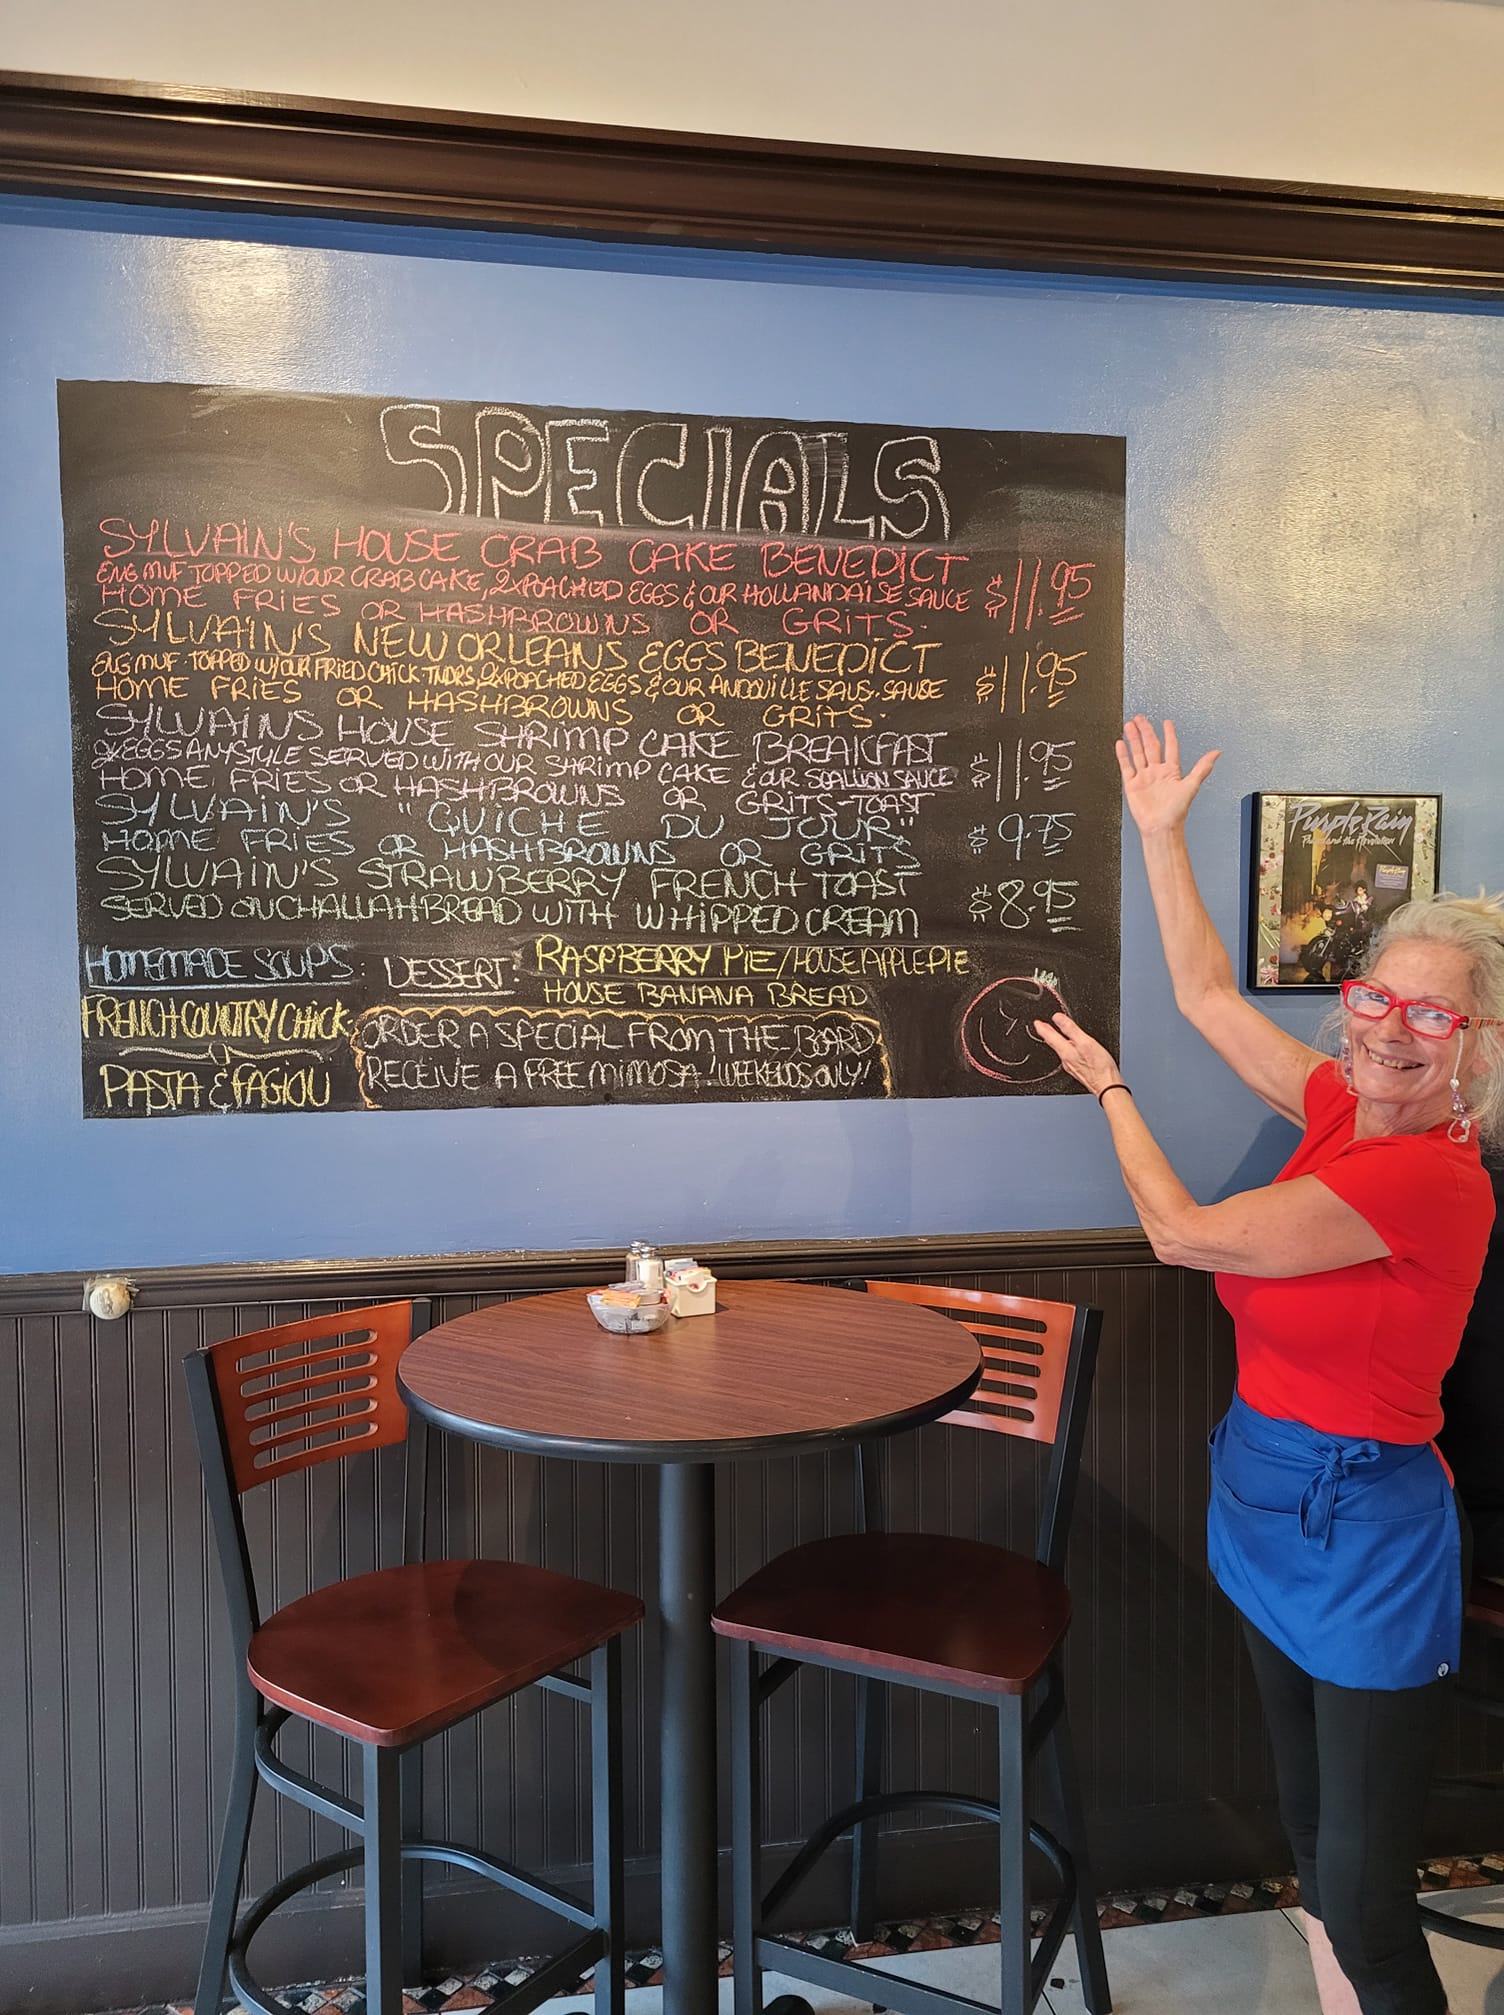 SPECIALS
SYLVAIN'S HOUSE CRAB CAKE BENEDICT
ENG MUF TOPPED W/OUR CRAB CAKE, 2xPOACHED EGGS & OUR HOLLANDAISE SAUCE $11.95
HOME FRIES OR HASHBROWNS OR GRITS.
SYLVAIN'S NEW ORLEANS EGGS BENEDICT
ENG MUF. TOPPED W/OUR FRIED CHICK TNDRS, 2xPOACHED EGGS & OUR ANDOUILLE SAUS. SAUSE $11.95
HOME FRIES OR HASHBROWNS OR GRITS.
SYLVAINS HOUSE SHRIMP CAKE BREAKFAST
2xEGGS ANYSTYLE SERVED WITH OUR SHRIMP CAKE & OUR SCALLION SAUCE $11.95
HOME FRIES OR HASHBROWNS OR GRITS-TOAST
SYLVAIN'S "QUICHE DU JOUR" $9.75
HOME FRIES OR HASHBROWNS OR GRITS
SYLVAIN'S STRAWBERRY FRENCH TOAST $8.95
SERVED ON CHALLAH BREAD WITH WHIPPED CREAM
HOMEMADE SOUPS:
FRENCH COUNTRY CHICK.
PASTA & FAGIOU
DESSERT: RASPBERRY PIE/HOUSE APPLE PIE
HOUSE BANANA BREAD
ORDER A SPECIAL FROM THE BOARD
RECEIVE A FREE MIMOSA! WEEKENDS ONLY!
Purple Rain
Prince and the Revolution